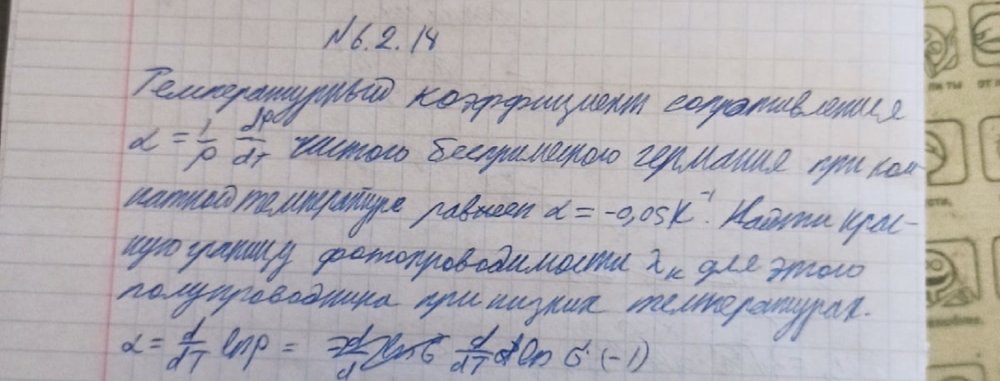 №6.2.18
Температурный коэффициент сопротивления
α = 1/ρ dρ/dT чистого беспримесного германия при ком
натной температуре равен α = -0,05K⁻¹. Найти крас-
ную границу фотопроводимости λк для этого
полупроводника при низких температурах.
α = d/dT lnρ = d/dT ln σ (-1)